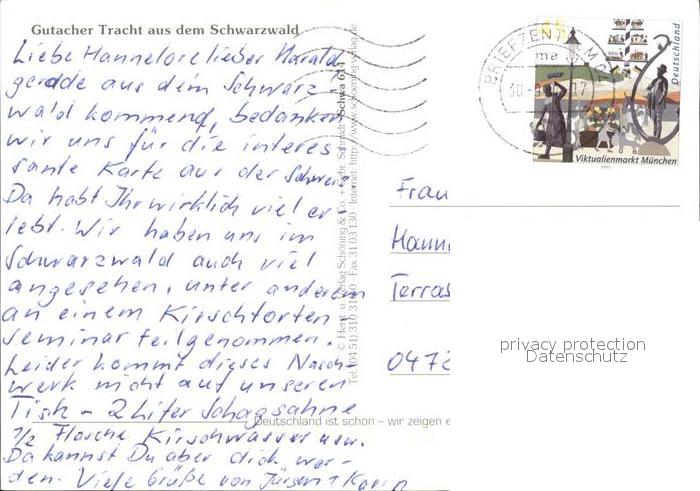 Gutacher Tracht aus dem Schwarzwald
Liebe Hannelore lieber Harald
gerade aus dem Schwarz-
wald kommend, bedanken
wir uns für die interes-
sante Karte aus der Schweiz
Da habt Ihr wirklich viel er-
lebt. Wir haben uns im
Schwarzwald auch viel
angesehen, unter anderem
an einem Kirschtorten
seminar teilgenommen.
Leider kommt dieses Nasch-
werk nicht auf unseren
Tisch - 2 Liter Schlagsahne
1/2 Flasche Kirschwasser usw.
Da kannst Du aber dick wer-
den. Viele Grüße von Jürgen + Karin
Schwa 614
Tel. (04 51) 310 31 Fax 31 03 130 Internet: http://www.schoening-verlag.de
Deutschland ist schön – wir zeigen e
BRIEFZENTRUM
Deutschland
Viktualienmarkt München
Frau
Hann
Terras
0472
privacy protection
Datenschutz